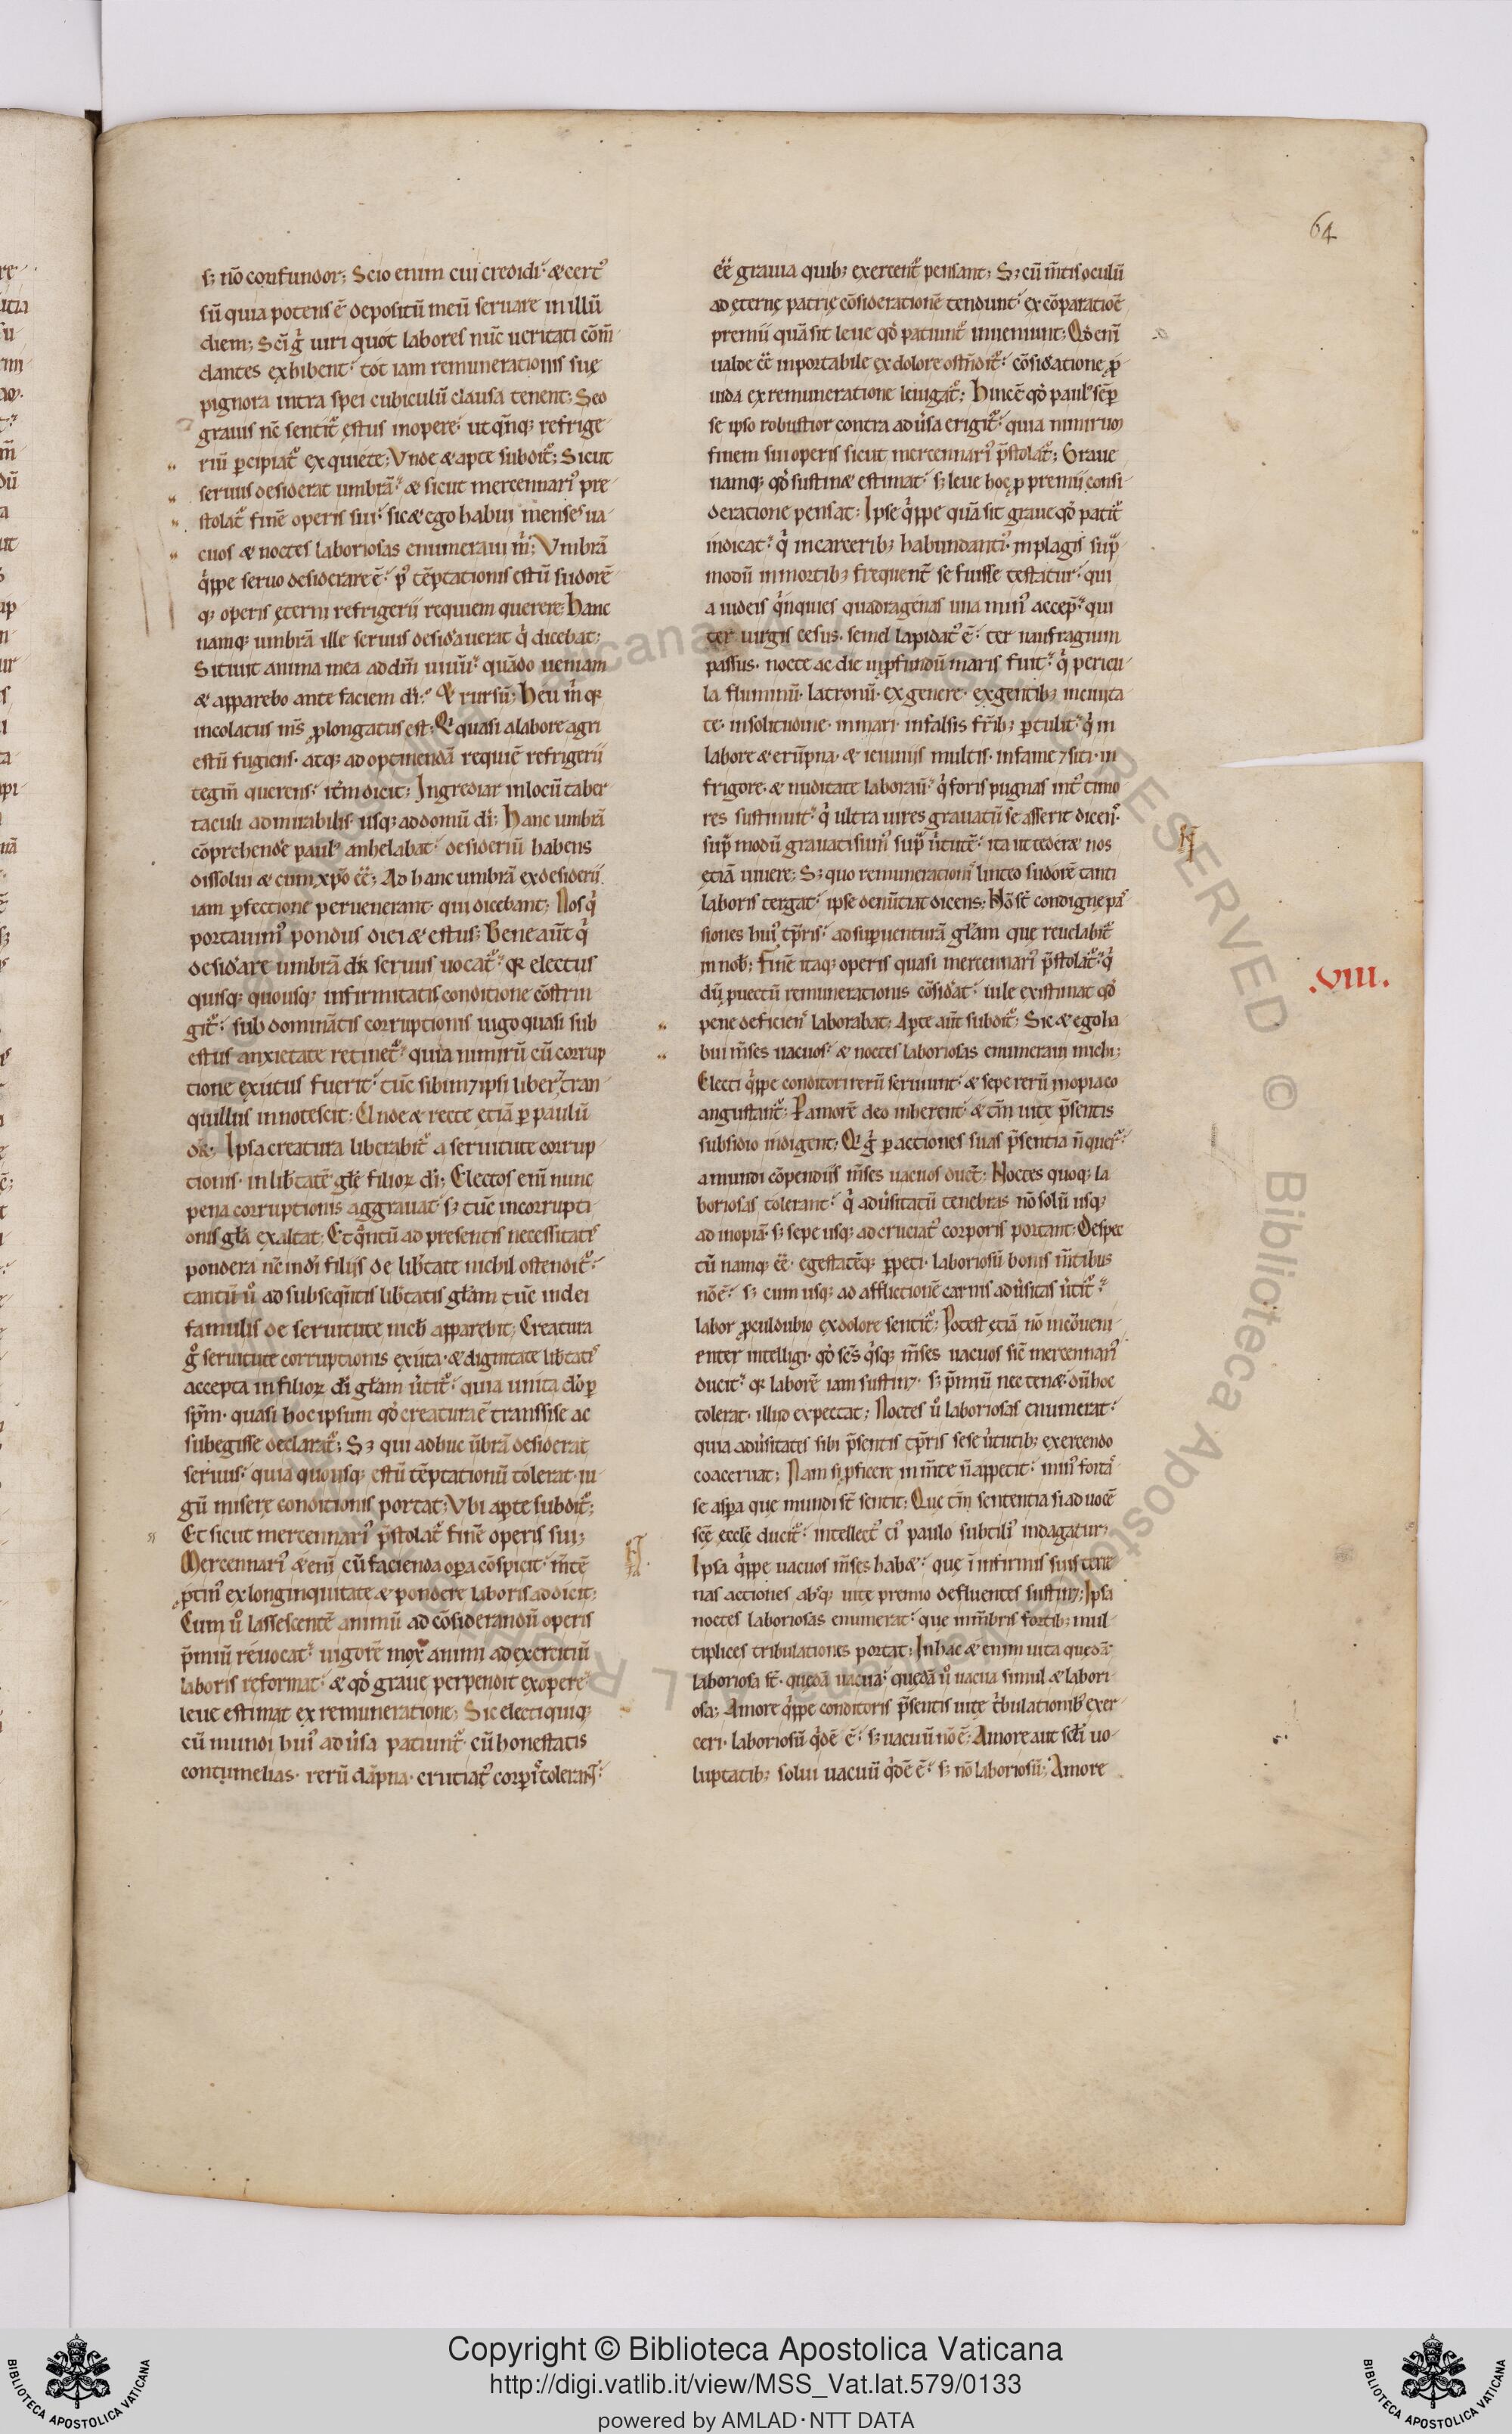 64
sꝫ nō confundor; Scio enim cui credidi. & cert᷒
sū quia potens ē depositū meū seruare in illū
diem; Sc̄i g̊ uiri quot labores nūc ueritati cōm̄
dantes exhibent. tot iam remunerationis suę
pignora intra spei cubiculū clausa tenent; Sed
grauis nc̄ sentit᷑ ęstus inopere. ut q̄nqꝫ refrige
riū ꝑcipiat᷑ ex quiete; Vnde & apte subdit᷑; Sicut
seruus desiderat umbrā. & sicut mercennari᷒ pre
stolat᷑ finē operis sui. sic & ego habui menses ua
cuos & noctes laboriosas enumeraui m̊; Vmbrā
q̊ppe seruo desiderare ē. p᷒ tēptationis estū sudorē
qꝫ operis ęterni refrigerii requiem querere; Hanc
namqꝫ umbrā ille seruus desid̓auerat q̊ dicebat;
Sitiuit anima mea ad dm̄ uiuū. quādo ueniam
& apparebo ante faciem dī. & rursū; Heu m̊ qꝛ
incolatus m̄s ꝓlongatus est; Qi quasi a labore agri
estū fugiens. atqꝫ ad optinendā requiē refrigerii
tegm̄ querens. it̄m dicit; Ingrediar in locū taber
naculi admirabilis. usqꝫ ad domū dī; Hanc umbrā
cōprehend̓e paul᷒ anhelabat. desideriū habens
dissolui & cum xp̄o ēē; Ad hanc umbrā ex desiderii
iam ꝑfectione peruenerant. qui dicebant; Nos q̊
portauim᷒ pondus diei & estus; Bene aūt q̊
desid̓are umbrā dr̄ seruus uocat᷑. qꝛ electus
quisqꝫ quousqꝫ infirmitatis conditione cōstrin
git᷑. sub dominātis corruptionis iugo quasi sub
estus anxietate retinet᷑. quia nimirū cū corrup
tione exutus fuerit. tūc sibim⁊ipsi liber. tran
quillus innotescit; Vnde & recte etiā ꝑ paulū
dr̄. Ipsa creatura liberabit᷑ a seruitute corrup
tionis. in lib̓tatē gl̄ę filioꝝ dī; Electos eni᷑ nunc
pena corruptionis aggrauat sꝫ tūc incorrupti
onis gl̄a exaltat; Et q̊ntū ad presentis necessitatis
pondera nc̄ indī filijs de lib̓tate nichil ostendit᷑.
tantū u᷒ ad subseq̄ntis lib̓tatis gl̄am tūc in dei
famulis de seruitute nich̄ apparebit; Creatura
g̊ seruitute corruptionis exuta. & dignitate lib̓tatis
accepta in filioꝝ dī gl̄am u̓tit᷑. quia unita dō ꝑ
sp̄m. quasi hoc ipsum qd̓ creatura ē transisse ac
subegisse declarat᷑; Sꝫ qui adhuc ūbrā desiderat
seruus. quia quousqꝫ estū tēptationū tolerat. iu
gū miserę conditionis portat; Vbi apte subdit᷑;
Et sicut mercennari᷒ p̄stolat᷑ finē operis sui;
Mercennari᷒ & eni᷑ cū facienda oꝑa cōspicit. m̄tē
ꝓtin᷒ ex longinquitate & pondere laboris addicit;
Cum u᷒ lassescentē animū ad cōsiderandū operis
p̄miū reuocat. uigorē mox animi ad exercitiū
laboris reformat. & qd̓ graue perpendit ex opere.
leue estimat ex remuneratione; Sic electi quiqꝫ
cū mundi hui᷒ adu̓sa patiunt᷑. cū honestatis
contumelias. rerū dāpna. cruciat᷒ corꝑis tolerant᷑.
ēē grauia quibꝫ exercent᷑ pensant; Sꝫ cū m̄tis oculū
ad ęternę patrię cōsiderationē tendunt. ex cōparatiōe
premii quā sit leue qd̓ patiunt᷑ inueniunt; Qd̓ eni᷑
ualde ēē inportabile ex dolore ostēdit᷑. cōsid̓atione ꝓ
uida ex remuneratione leuigat᷑; Hinc ē qd̓ paul᷒ sēꝑ
se ipso robustior contra adu̓sa erigit᷑. quia nimirum
finem sui operis sicut mercennari᷒ p̄stolat᷑; Graue
namqꝫ qd̓ sustin& estimat. sꝫ leue hoc ꝓ premii consi
deratione pensat; Ipse q̊ppe quā sit graue qd̓ patit᷑
indicat. q̊ in carceribꝫ habundanti᷒. in plagis sup̄
modū in mortibꝫ frequent᷑ se fuisse testatur. qui
a iudeis q̊nquies quadragenas una min᷒ accep̄. qui
ter uirgis cesus. semel lapidat᷒ ē. ter naufragium
passus. nocte ac die in ꝓfundū maris fuit. q̊ pericu
la fluminū. latronū. ex genere. ex gentibꝫ in ciuita
te. in solitudine. in mari. in falsis fr̄ibꝫ ꝑtulit. q̊ in
labore & erūpna. & ieiuniis multis. in fame ⁊ siti. in
frigore. & nuditate laborau̅. q̊ foris pugnas int᷒ timo
res sustinuit. q̊ ultra uires grauatū se asserit dicen̄.
sup̄ modū grauati sum᷒ sup̄ u̓tutē. ita ut teder& nos
etiā uiuere; Sꝫ quo remunerationis linteo sudorē tanti
laboris tergat. ipse denūtiat dicens; Nō st̄ condigne pas
siones hui᷒ tp̄ris. ad suꝑuenturā gl̄am que reuelabit᷑
in nob̄; Finē itaqꝫ operis quasi mercennari᷒ p̄stolat᷑. q̊
dū ꝓuectū remunerationis cōsid̓at. uile existimat qd̓
pene deficiens laborabat; Apte aūt subdit᷑; Sic & ego ha
bui m̄ses uacuos. & noctes laboriosas enumeraui michi;
Electi q̊ppe conditori rerū seruiunt. & sepe rerū inopia co
angustant᷑; Per amorē deo inherent. & tm̄ uite p̄sentis
subsidio indigent; Qi g̊ ꝑ actiones suas p̄sentia n̄ quer᷑t.
a mundi cōpendiis m̄ses uacuos ducūt; Noctes quoqꝫ la
boriosas tolerant. q̊ adu̓sitatū tenebras nō solū usqꝫ
ad inopiā. sꝫ sepe usqꝫ ad cruciat᷒ corporis portant; Despec
tū namqꝫ ēē. egestatēqꝫ ꝑpeti. laboriosū bonis m̄tibus
nō ē. sꝫ cum usqꝫ ad afflictionē carnis adu̓sitas u̓tit᷑.
labor ꝓculdubio ex dolore sentit᷑; Potest etiā nō inc̄ueni
enter intelligi. qd̓ sc̄s q̊sqꝫ m̄ses uacuos sic̄ mercennari᷒
ducit. qꝛ laborē iam sustin⁊. sꝫ p̄miū nec ten&. dū hoc
tolerat. illud expectat; Noctes u᷒ laboriosas enumerat.
quia adu̓sitates sibi p̄sentis tp̄ris sese u̓tutibꝫ exercendo
coaceruat; Nam si ꝓficere in m̄te n̄ appetit. min᷒ fortas
se asꝑa que mundi st̄ sentit; Que tm̄ sententia si ad uocē
sc̄ę eccl̄ę ducit᷑. intellect᷒ ei᷒ paulo subtili᷒ indagatur;
Ipsa q̊ppe uacuos m̄ses hab&. que ī infirmis suis terre
nas actiones absqꝫ uite premio defluentes sustin⁊; Ipsa
noctes laboriosas enumerat. que in m̄bris fortibꝫ mul
tiplices tribulationes portat; In hac & enim uita quedā
laboriosa st̄. quedā uacua. quedā u᷒ uacua simul & labori
osa; Amore q̊ppe conditoris p̄sentis uite t̊bulationibꝫ exer
ceri. laboriosū q̊dē ē. sꝫ uacuū nō ē; Amore aut sc̄li uo
luptatibꝫ solui uacuū q̊dē ē. sꝫ nō laboriosū; Amore
.VIII.
Copyright © Biblioteca Apostolica Vaticana
http://digi.vatlib.it/view/MSS_Vat.lat.579/0133
powered by AMLAD·NTT DATA
BIBLIOTECA APOSTOLICA VATICANA
BIBLIOTECA APOSTOLICA VATICANA